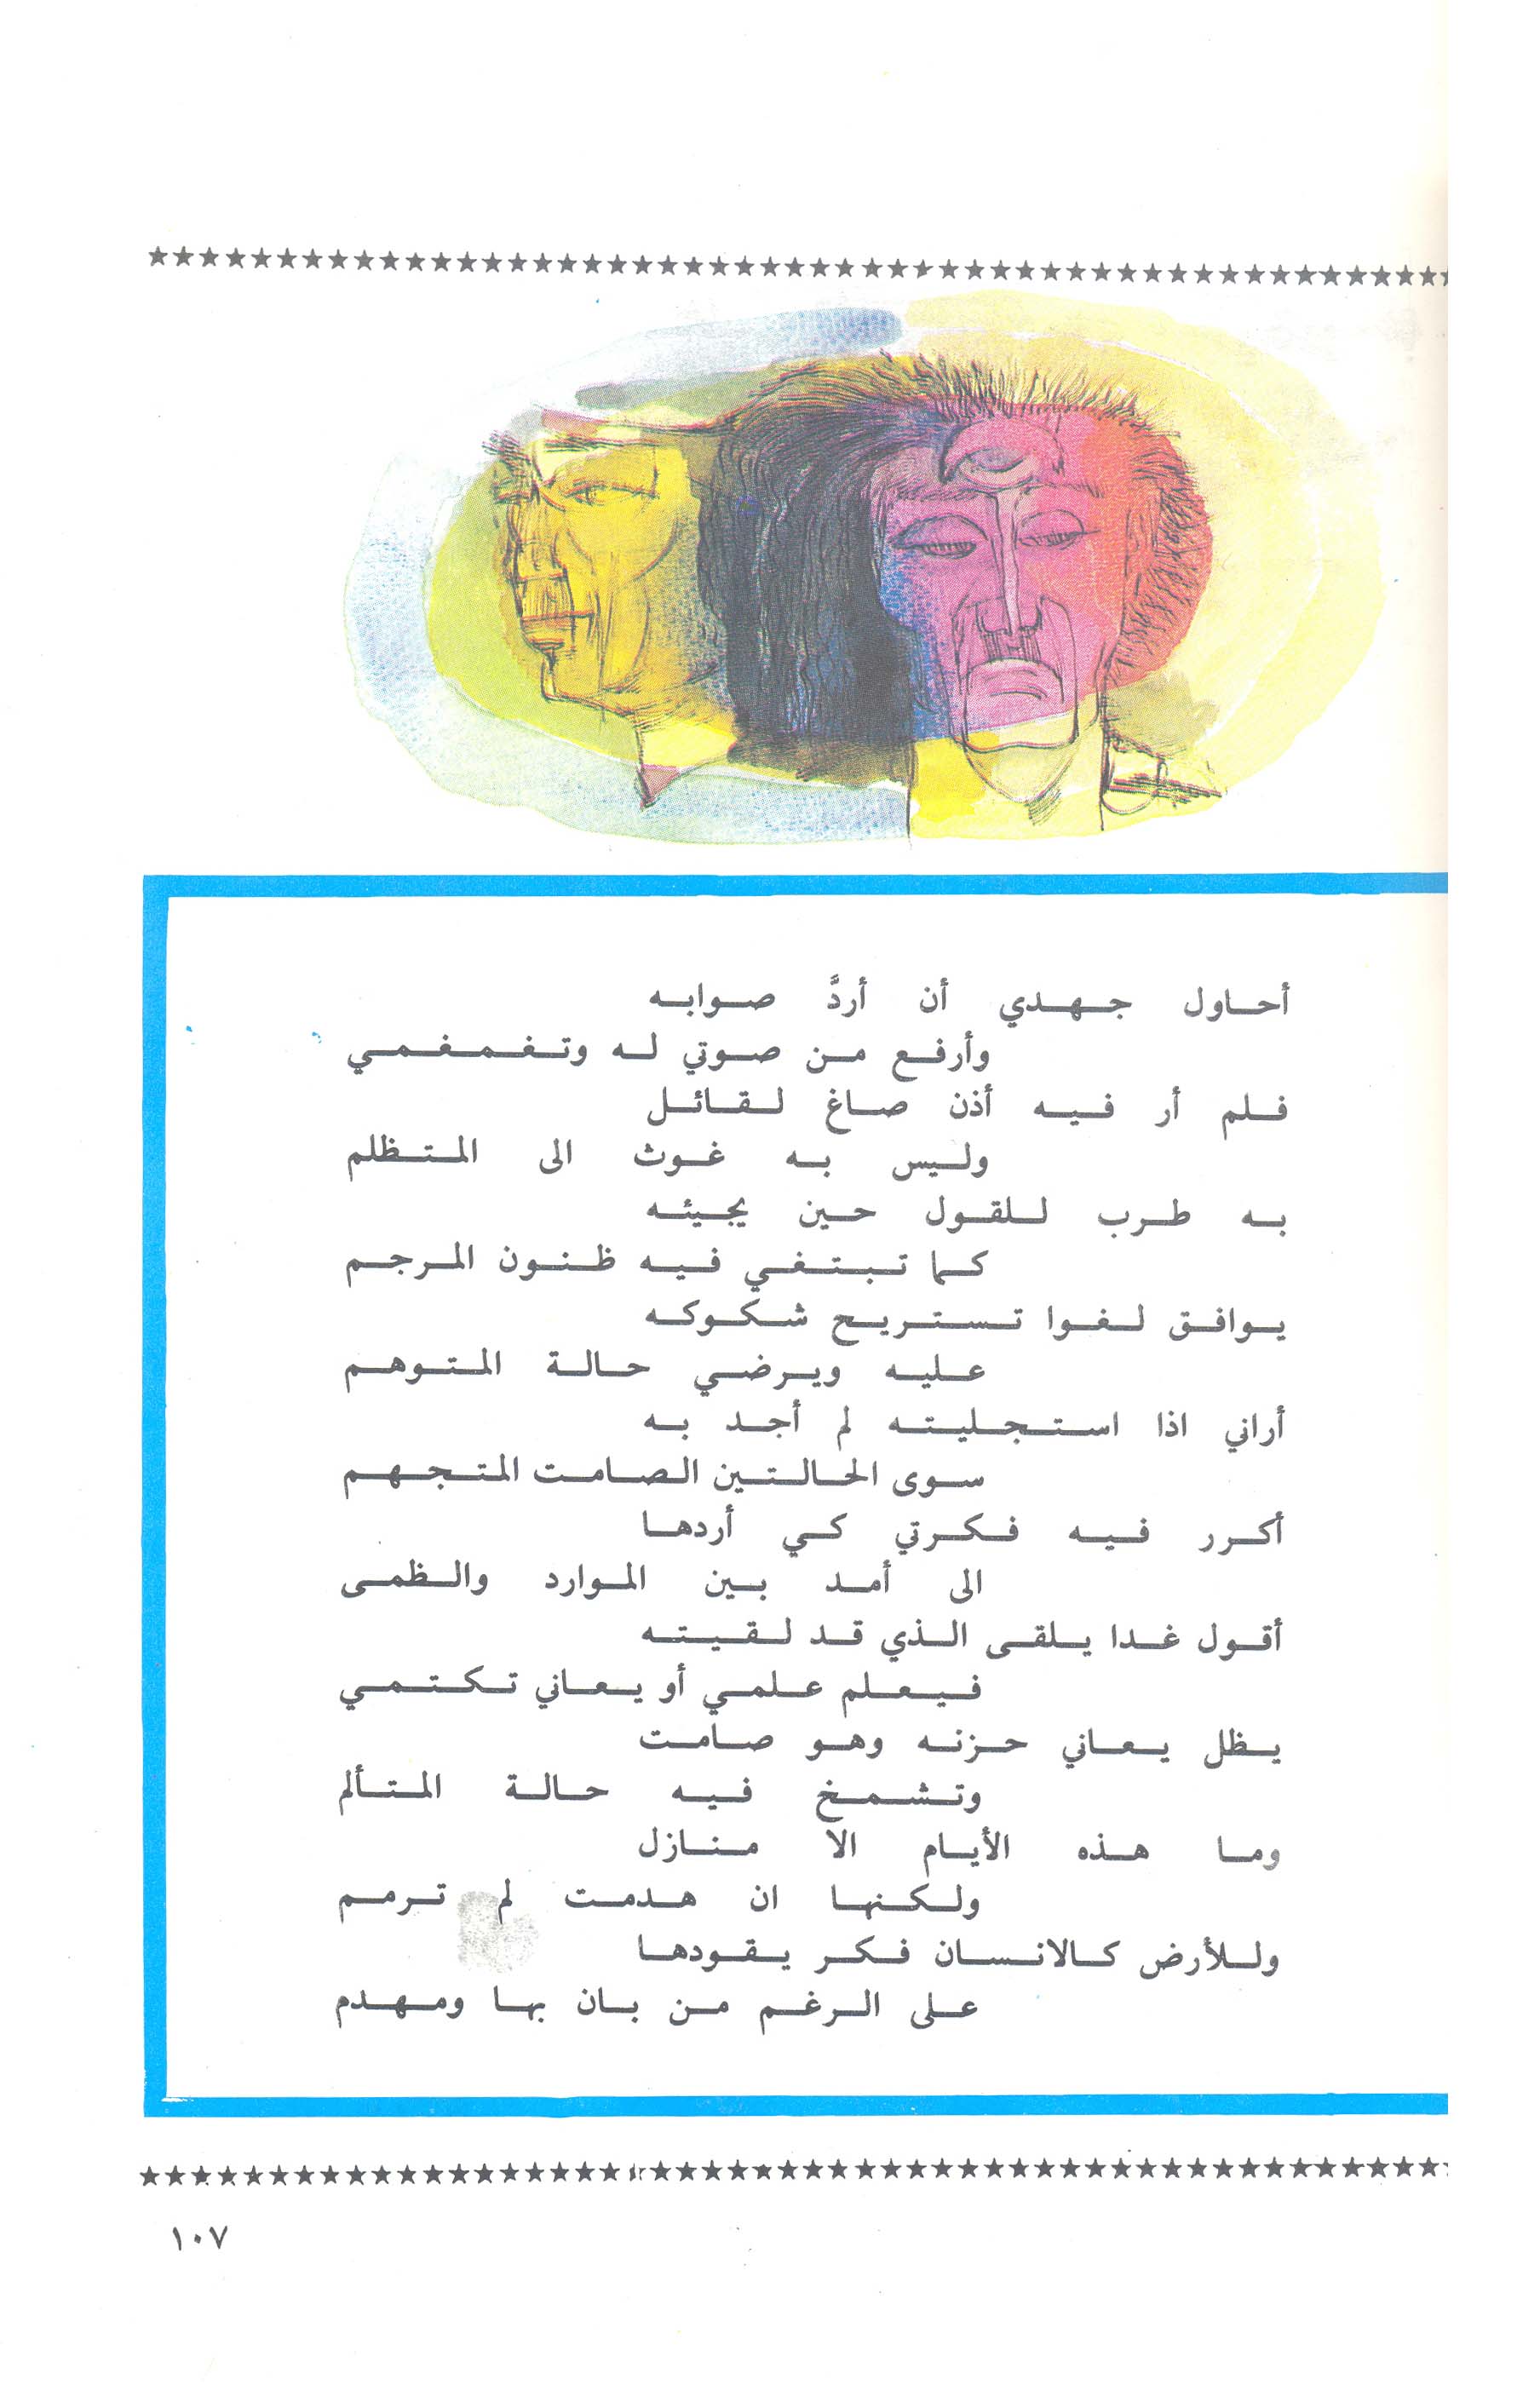 أحاول جهدي أن أردَّ صوابه
وأرفع من صوتي له وتغمغمي
فلم أر فيه أذن صاغ لقائل
وليس به غوث الى المتظلم
به طرب للقول حين يجيئه
كما تبتغي فيه ظنون المرجم
يوافق لغوا تستريح شكوكه
عليه ويرضي حالة المتوهم
أراني اذا استجليته لم أجد به
سوى الحالتين الصامت المتجهم
أكرر فيه فكرتي كي أردها
الى أمد بين الموارد والظمى
أقول غدا يلقى الذي قد لقيته
فيعلم علمي أو يعاني تكتمي
يظل يعاني حزنه وهو صامت
وتشمخ فيه حالة المتألم
وما هذه الأيام الا منازل
ولكنها ان هدمت لم ترمم
وللأرض كالانسان فكر يقودها
على الرغم من بان بها ومهدم
١٠٧